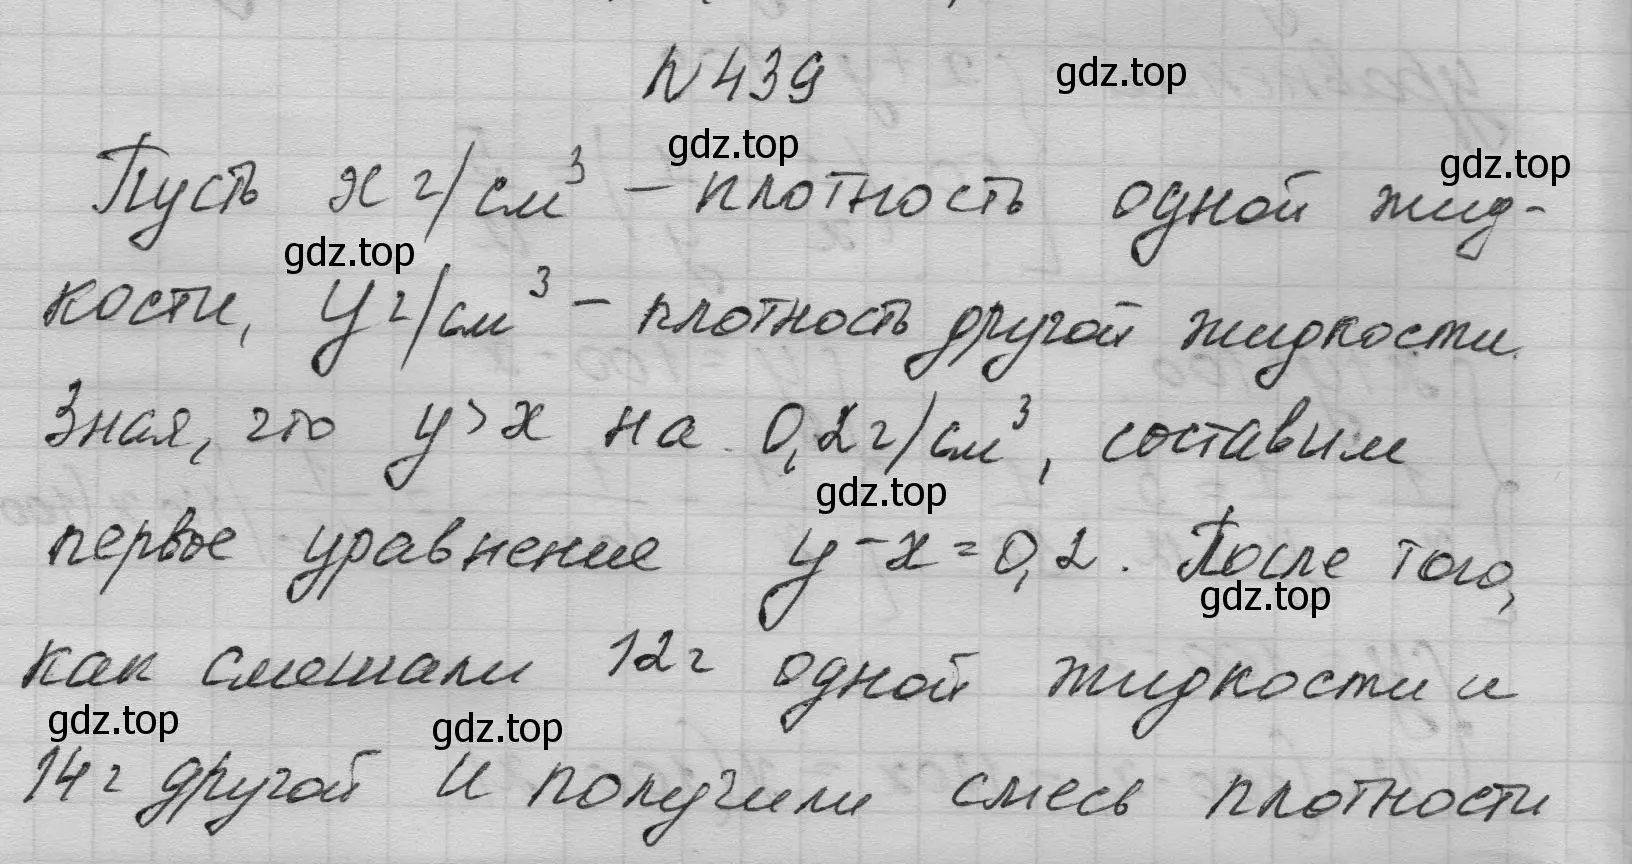 N 439
gdz.top
gdz.top
gdz.top
Пусть x г/см³ — плотность одной жид-
gdz.top
кости, y г/см³ — плотность другой жидкости.
Зная, что y > x на 0,2 г/см³, составим
gdz.top
первое уравнение y - x = 0,2. После того,
gdz.top
как смешали 12 г одной жидкости и
gdz.top
gdz.top
14 г другой и получили смесь плотности